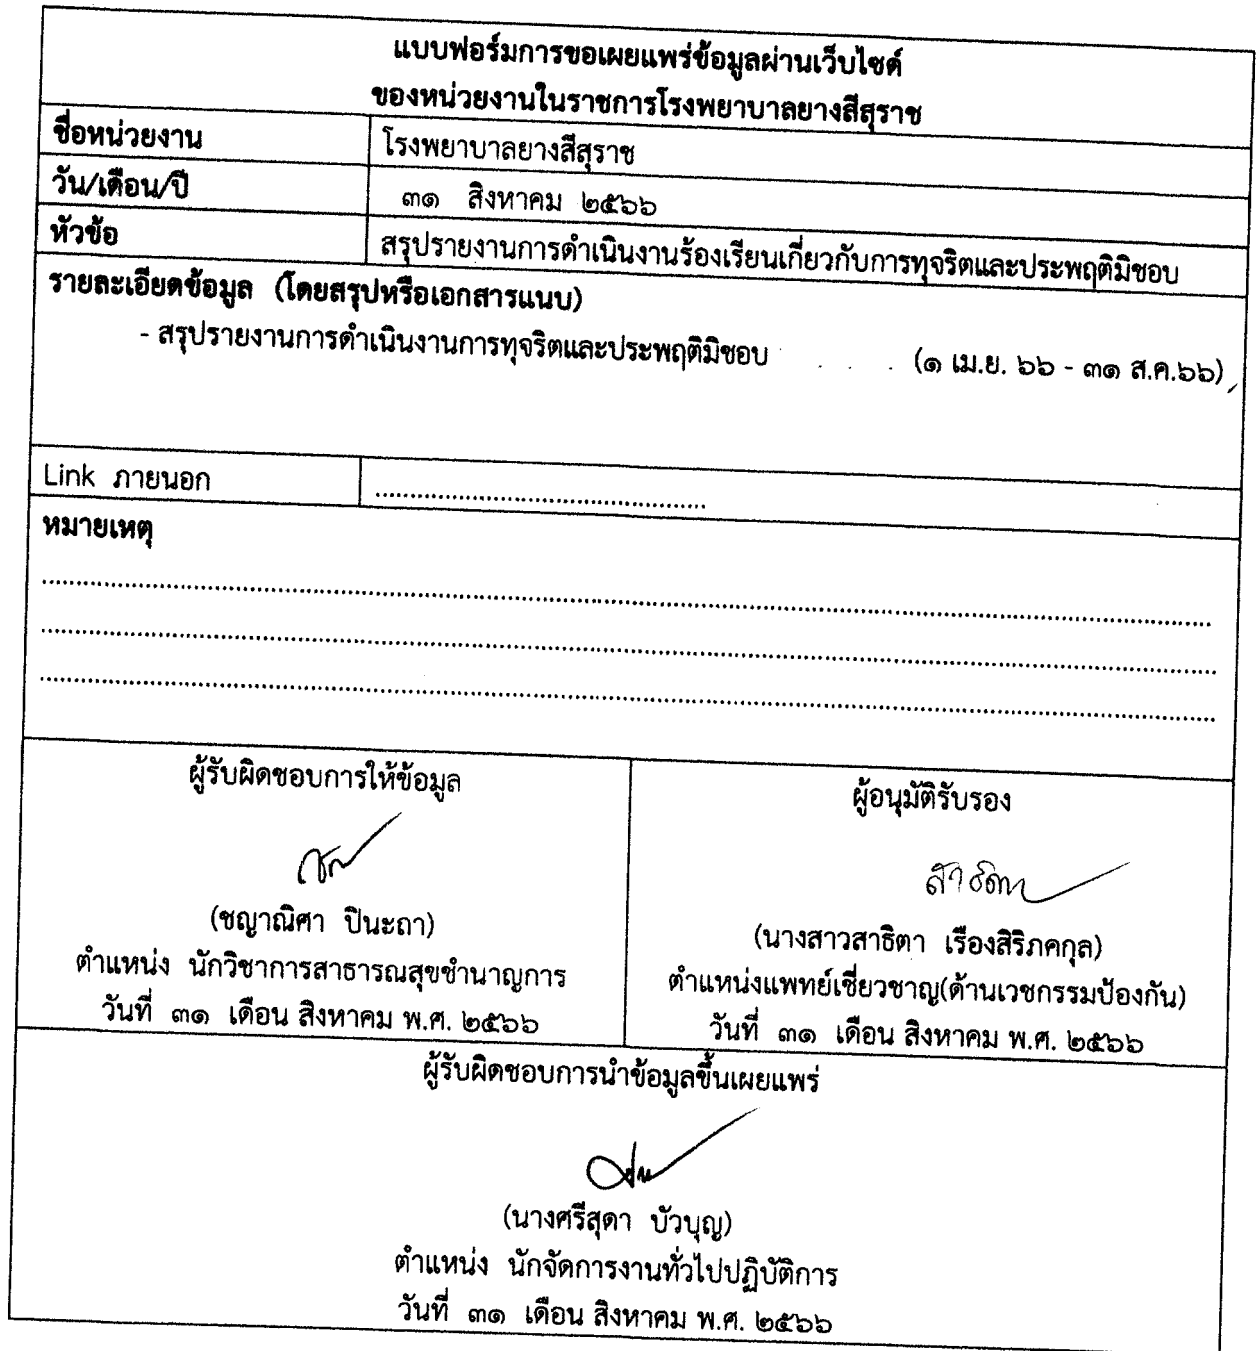 แบบฟอร์มการขอเผยแพร่ข้อมูลผ่านเว็บไซต์
ของหน่วยงานในราชการโรงพยาบาลยางสีสุราช
ชื่อหน่วยงาน โรงพยาบาลยางสีสุราช
วัน/เดือน/ปี ๓๑ สิงหาคม ๒๕๖๖
หัวข้อ สรุปรายงานการดำเนินงานร้องเรียนเกี่ยวกับการทุจริตและประพฤติมิชอบ
รายละเอียดข้อมูล (โดยสรุปหรือเอกสารแนบ)
- สรุปรายงานการดำเนินงานการทุจริตและประพฤติมิชอบ (๑ เม.ย. ๖๖ - ๓๑ ส.ค.๖๖)
Link ภายนอก ................................................
หมายเหตุ
ผู้รับผิดชอบการให้ข้อมูล
(ชญาณิศา ปินะถา)
ตำแหน่ง นักวิชาการสาธารณสุขชำนาญการ
วันที่ ๓๑ เดือน สิงหาคม พ.ศ. ๒๕๖๖
ผู้อนุมัติรับรอง
สาธิตา
(นางสาวสาธิตา เรืองสิริภคกุล)
ตำแหน่งแพทย์เชี่ยวชาญ(ด้านเวชกรรมป้องกัน)
วันที่ ๓๑ เดือน สิงหาคม พ.ศ. ๒๕๖๖
ผู้รับผิดชอบการนำข้อมูลขึ้นเผยแพร่
(นางศรีสุดา บัวบุญ)
ตำแหน่ง นักจัดการงานทั่วไปปฏิบัติการ
วันที่ ๓๑ เดือน สิงหาคม พ.ศ. ๒๕๖๖